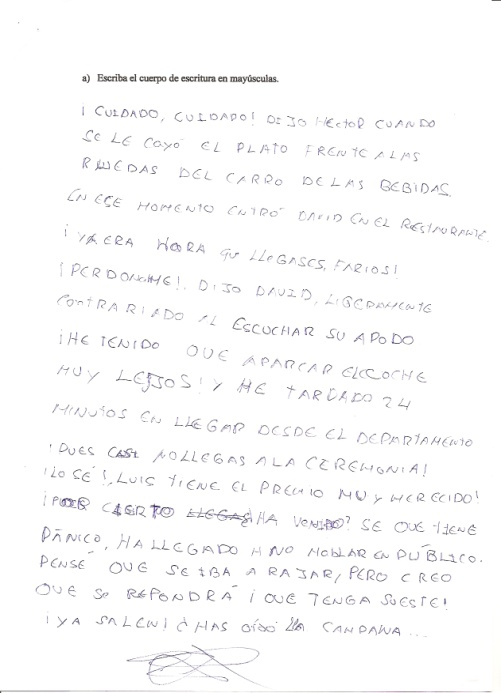 a) Escriba el cuerpo de escritura en mayúsculas.
¡ CUIDADO, CUIDADO! DIJO HÉCTOR CUANDO
SE LE CAYÓ EL PLATO FRENTE A LAS
RUEDAS DEL CARRO DE LAS BEBIDAS.
EN ESE MOMENTO ENTRÓ DAVID EN EL RESTAURANTE.
¡ YA ERA HORA QUE LLEGASES, FARIOS!
¡PERDONADME!. DIJO DAVID, LIGERAMENTE
CONTRARIADO AL ESCUCHAR SU APODO
¡HE TENIDO QUE APARCAR EL COCHE
MUY LEJOS! Y HE TARDADO 24
MINUTOS EN LLEGAR DESDE EL DEPARTAMENTO
¡PUES CASI NO LLEGAS A LA CEREMONIA!
¡LO SÉ!, LUIS TIENE EL PREMIO MUY MERECIDO!
¡POR CIERTO HA VENIDO? SE QUE TIENE
PÁNICO, HA LLEGADO A NO HABLAR EN PÚBLICO.
PENSÉ QUE SE IBA A RAJAR, PERO CREO
QUE SE REPONDRÁ ¡ QUE TENGA SUESTE!
¡ YA SALEN! ¿HAS OÍDO LA CANPANA ...